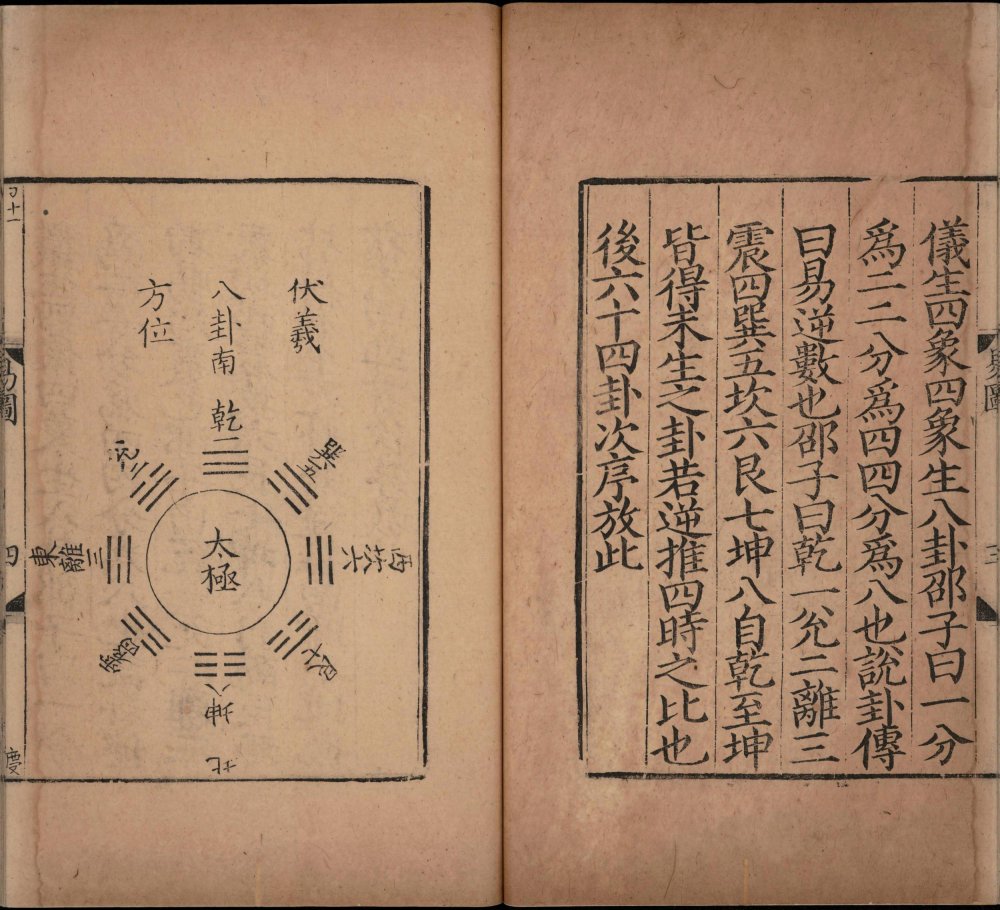 儀生四象四象生八卦邵子曰一分
爲二二分爲四四分爲八也說卦傳
曰易逆數也邵子曰乾一兊二離三
震四巽五坎六艮七坤八自乾至坤
皆得未生之卦若逆推四時之比也
後六十四卦次序放此
易圖
三
伏羲
八卦
方位
南
乾一
兊二
離三
東
震四
巽五
坎六
西
艮七
坤八
北
太極
易圖
四
慶